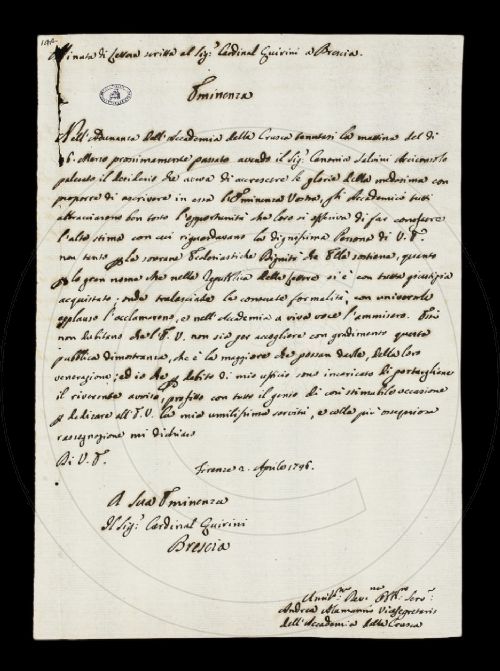 194
Minuta di Lettera scritta al Sig.r Cardinal Quirini a Brescia.
Eminenza
Nell'Adunanza dell'Accademia della Crusca tenutasi la mattina del dì
Marzo prossimamente passato avendo il Sig.r Canonico Salvini Arciconsolo
palesato il desiderio che aveva di accrescere le glorie della medesima con
proporre di ascrivere in essa l'Eminenza Vostra, gli Accademici tutti
abbracciarono ben tosto l'opportunità che loro si offeriva di far conoscere
l'alta stima con cui riguardavano la degnissima Persona di V. E.
non tanto p la sovrana Ecclesiastica Dignità che Ella sostiene, quanto
p lo gran nome che nella Repubblica delle lettere si è con tutta giustizia
acquistato; onde tralasciate le consuete formalità, con universale
applauso l'acclamarono, e nell'Accademia a viva voce l'ammisero. Essi
non dubitano che l'E. V. non sia per accogliere con gradimento questa
pubblica dimostranza, che è la maggiore che possan darle della loro
venerazione; ed io che p debito di mio ufizio sono incaricato di portarghiene
il riverente avviso, profitto con tutto il genio di così stimabile occasione
p dedicare all'E. V. la mia umilissima servitù, e colla più ossequiosa
rassegnazione mi dichiaro
Di V. E.
Firenze 2. Aprile 1746.
A Sua Eminenza
Il Sig.r Cardinal Quirini
Brescia
Andrea Alamanni Vicesegretario
dell'Accademia della Crusca